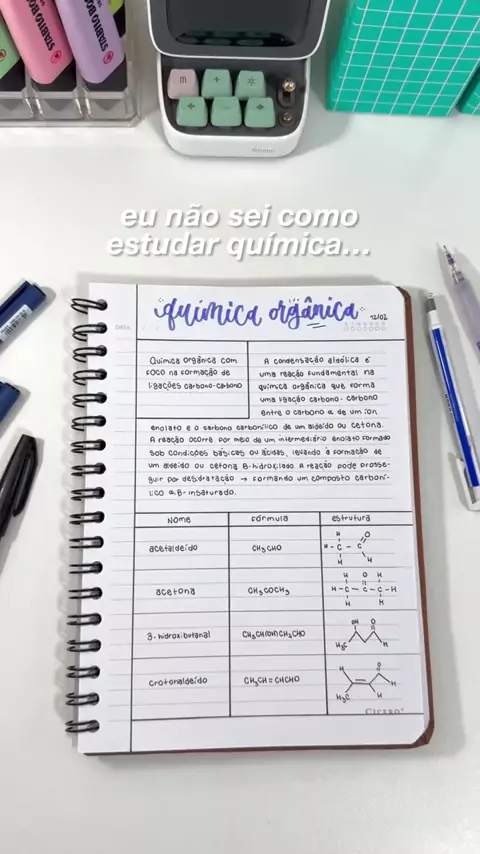 STABILO BOSS
STABILO BOSS
m
+
eu não sei como
estudar química...
química orgânica
12/02
DATA
Química orgânica com
foco na formação de
ligações carbono-carbono
A condensação aldólica é
uma reação fundamental na
química orgânica que forma
uma ligação carbono-carbono
entre o carbono α de um íon
enolato e o carbono carbonílico de um aldeído ou cetona.
A reação ocorre por meio de um intermediário enolato formado
sob condições básicas ou ácidas, levando à formação de
um aldeído ou cetona B-hidroxilado. A reação pode prosse-
guir por desidratação → formando um composto carboní-
lico α,B-insaturado.
Nome
Fórmula
estrutura
acetaldeído
CH₃CHO
H
O
H - C - C
H
H
acetona
CH₃COCH₃
H O H
H - C - C - C - H
H H
3-hidroxibutanal
CH₃CH(OH)CH₂CHO
OH O
H₃C H
crotonaldeído
CH₃CH=CHCHO
O
H H
H₃C H
CICERO